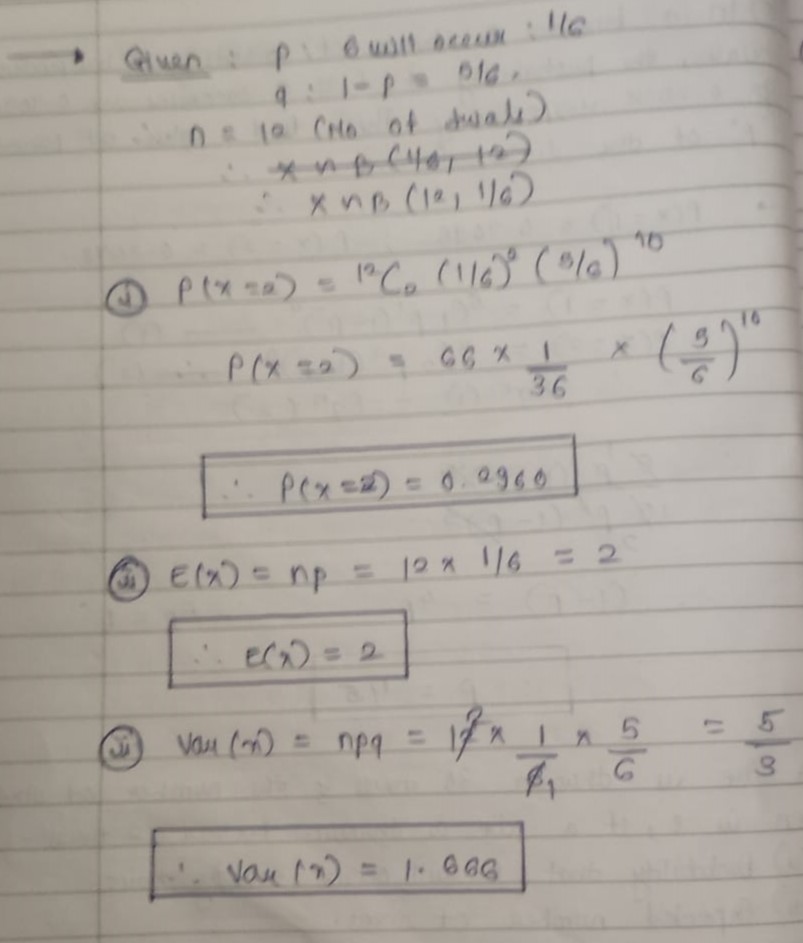 → Given : p : 6 will occur : 1/6
q : 1 - p = 5/6.
n = 12 (No of trials)
∴ x ~ B (1/6, 12)
∴ x ~ B (12, 1/6)
(i) P(x = 2) = ¹²C₂ (1/6)² (5/6)¹⁰
∴ P(x = 2) = 66 × 1/36 × (5/6)¹⁰
∴ P(x = 2) = 0.2960
(ii) E(x) = np = 12 × 1/6 = 2
∴ E(x) = 2
(iii) Var (x) = npq = 12 2 × 1/6 1 × 5/6 = 5/3
∴ Var (x) = 1.666